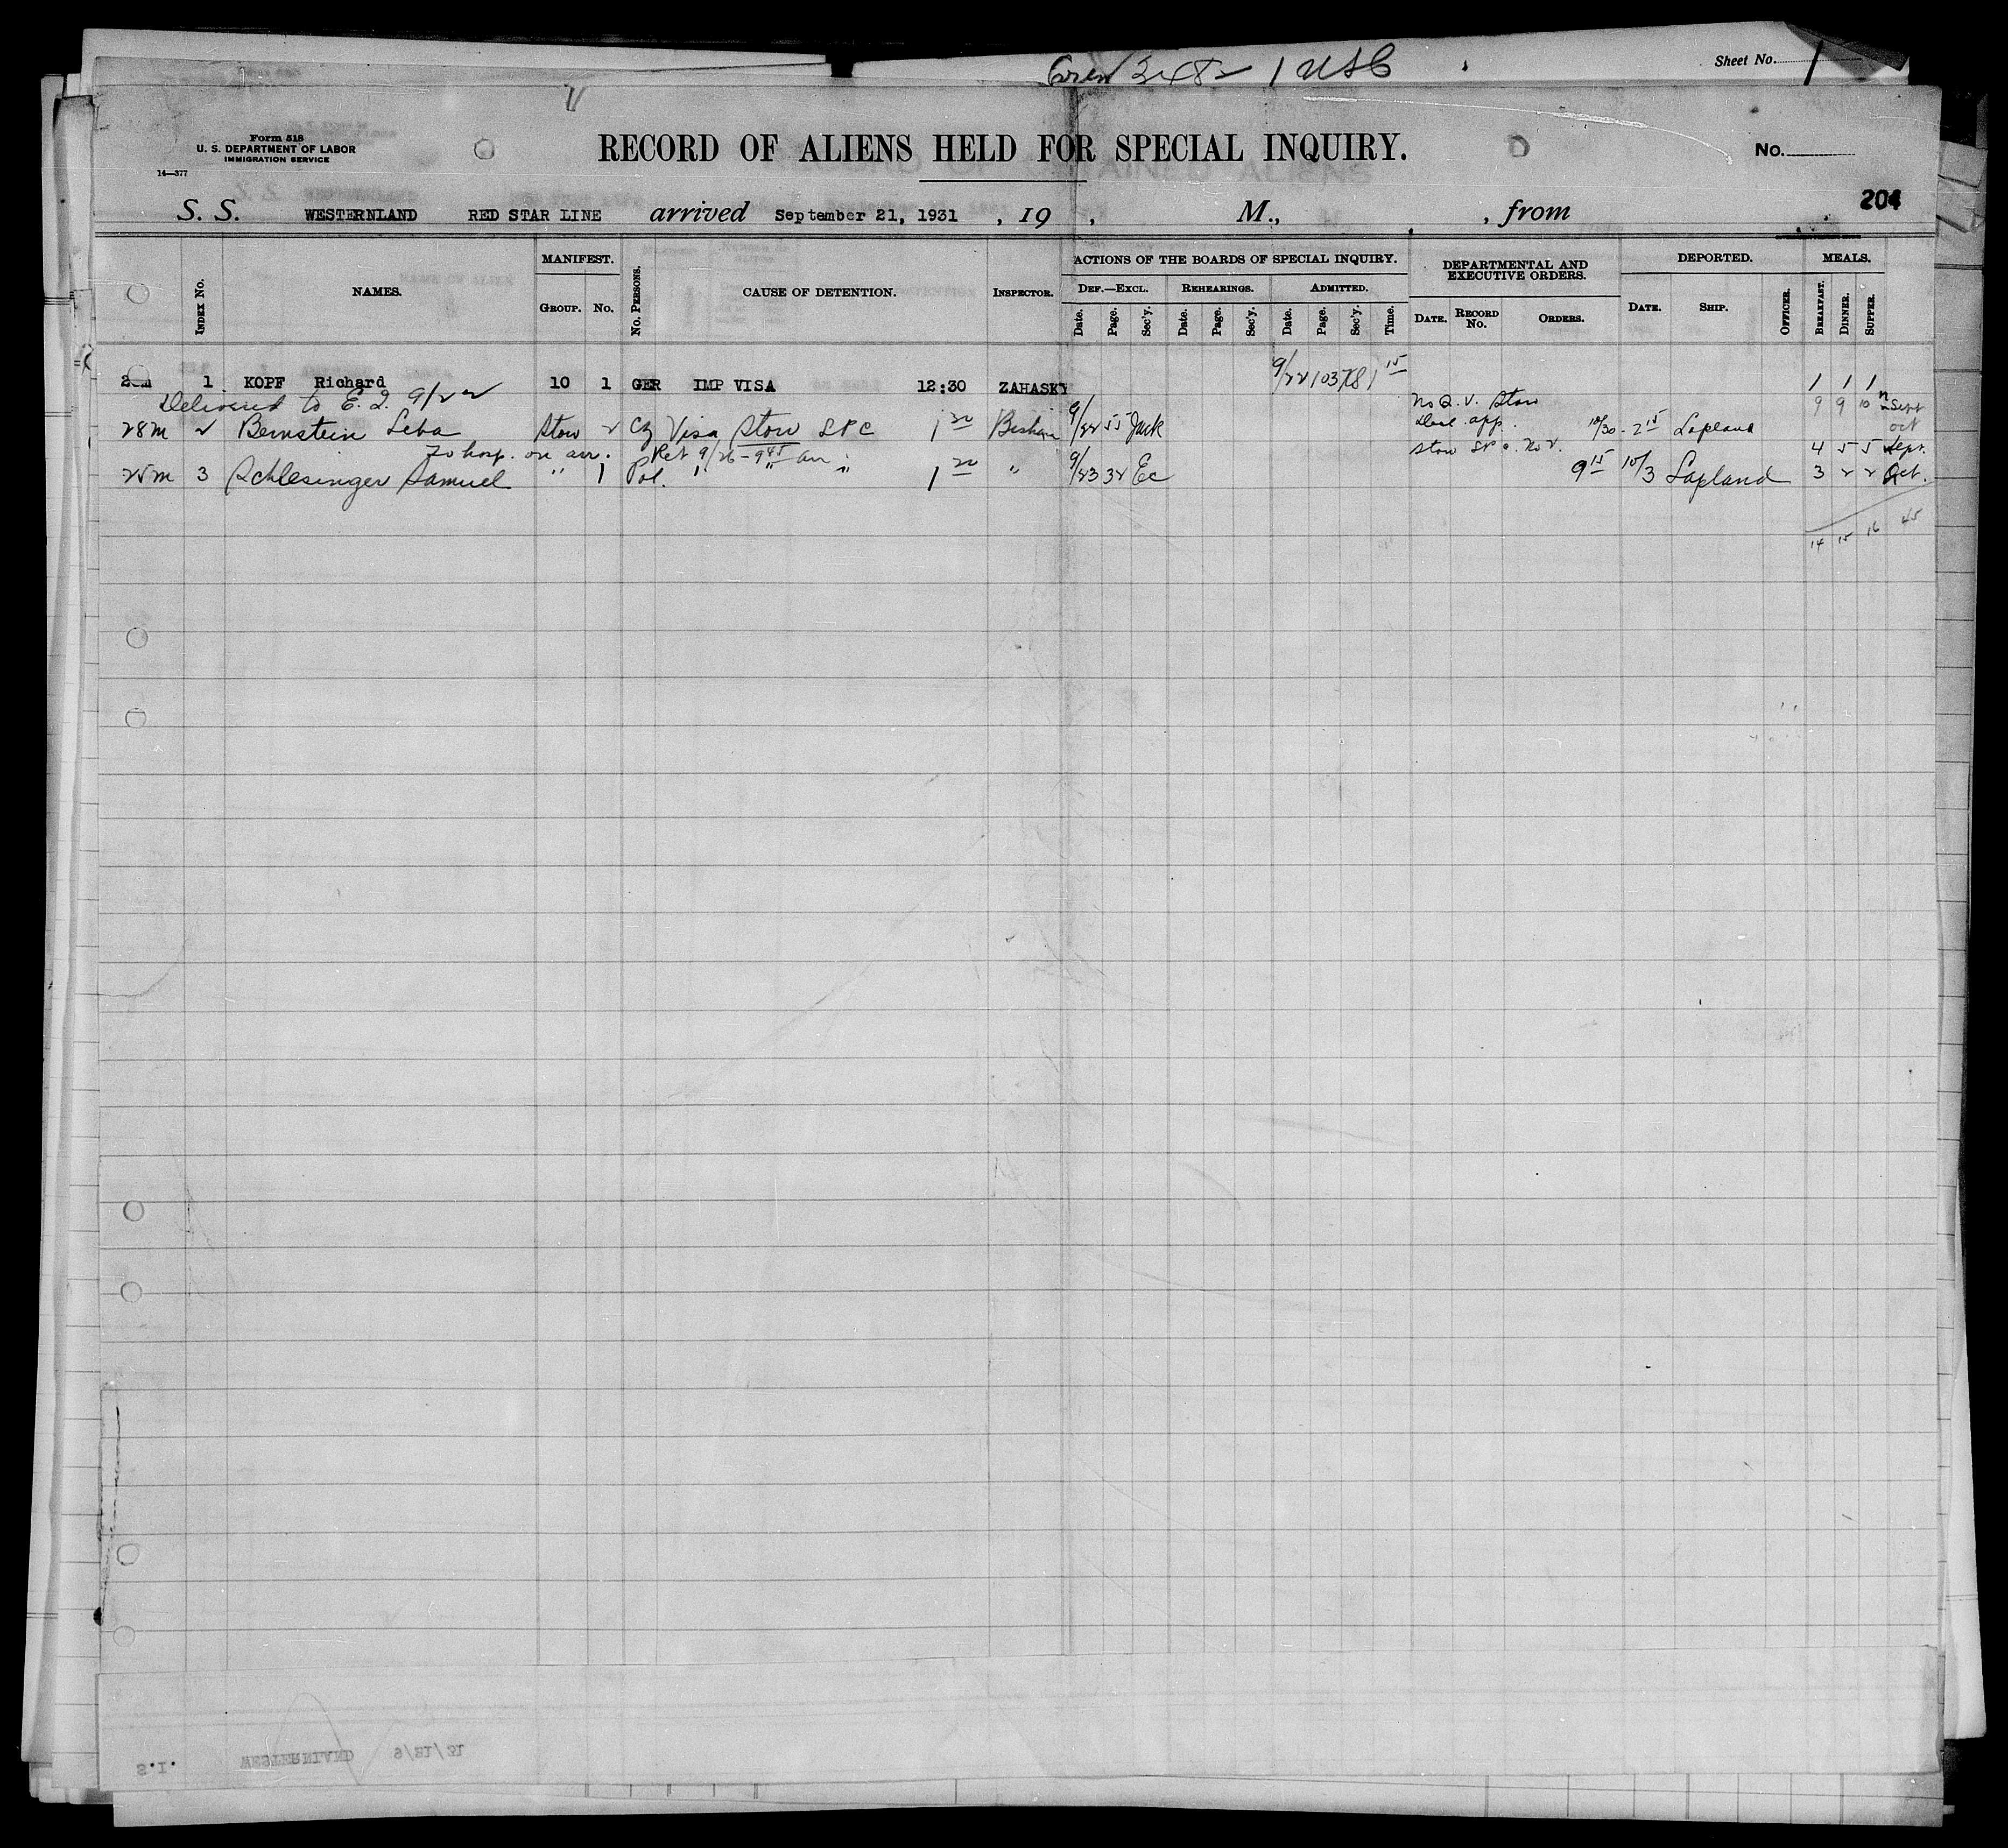 1 USC
Sheet No. 1
Form 518
U. S. DEPARTMENT OF LABOR
IMMIGRATION SERVICE
14—377
RECORD OF ALIENS HELD FOR SPECIAL INQUIRY.
No.
204
S. S. WESTERNLAND RED STAR LINE arrived September 21, 1931 , 19 , M., , from
Index No. NAMES. MANIFEST. Group. No. No. Persons. CAUSE OF DETENTION. Inspector. ACTIONS OF THE BOARDS OF SPECIAL INQUIRY. Def.—Excl. Date. Page. Sec'y. Rehearings. Date. Page. Sec'y. Admitted. Date. Page. Sec'y. Time. DEPARTMENTAL AND EXECUTIVE ORDERS. Date. Record No. Orders. DEPORTED. Date. Ship. Officer. MEALS. Breakfast. Dinner. Supper.
1 KOPF Richard 10 1 GER IMP VISA 12:30 ZAHASKY 9/22 1 15 1 1 1
Delivered to E. I. 9/22
No Q. V. Stow 9 9 10 Sept
28m 2 Bernstein Leba Stow 2 Cz Visa Stow LPC 1 20 9/22 55 app. 10/30 - 2 15 Lapland oct
To hosp. on arr. Ret 9/26 - 9 45 am 4 5 5 Sept.
25m 3 Schlesinger Samuel " 1 Pol. " " " 1 20 " 9/23 32 Ec 9 15 10/3 Lapland 3 2 2 Oct.
14 15 16 45
S.I. WESTERNLAND 9/21/31